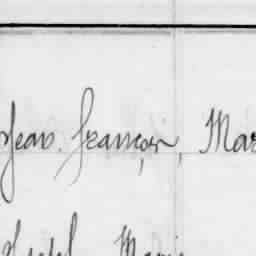 Jean. françois, Mar
Marie